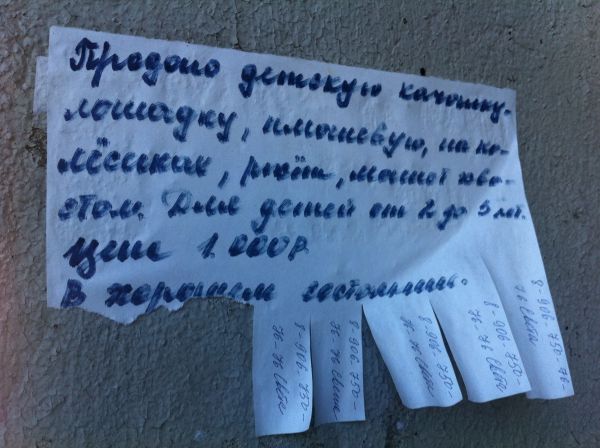 Продаю детскую качалку-
лошадку, плюшевую, на ко-
лёсиках, ржёт, машет хво-
стом. Для детей от 2 до 5 лет.
Цена 1.000р
В хорошем состоянии.
8-906-750-
76-76 Света
8-906-750-
76-76 Света
8-906-750-
76-76 Света
8-906-750-
76-76 Света
8-906-750-76-
76 Света